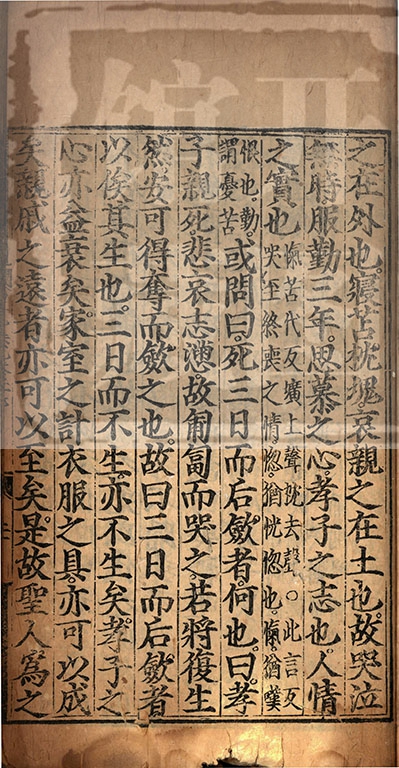 之在外也。寢苫枕塊。哀親之在土也。故哭泣
無時。服勤三年。思慕之心。孝子之志也。人情
之實也愾苦代反壙上聲枕去聲○此言反哭至終喪之情惚猶恍惚也。愾猶嘆
恨也。勤。謂憂苦或問曰。死三日而后斂者。何也。曰。孝
子親死悲哀志懣故匍匐而哭之。若將復生
然安可得奪而斂之也。故曰三日而后斂者
以俟其生也。三日而不生亦不生矣。孝子之
心亦益衰矣。家室之計衣服之具。亦可以成
矣。親戚之遠者亦可以至矣。是故聖人爲之